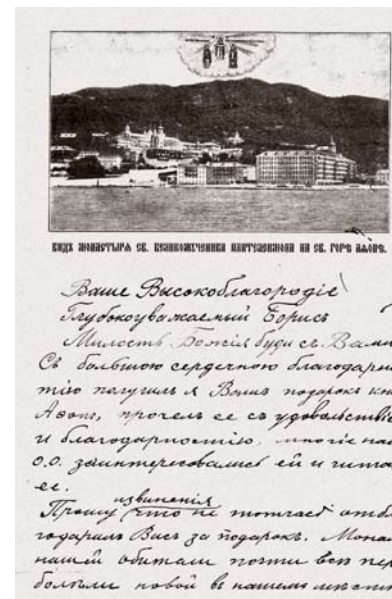 ВИДЪ МОНАСТЫРЯ СВ. ВЕЛИКОМУЧЕНИКА ПАНТЕЛЕИМОНА НА СВ. ГОРѢ АѲОНѢ.
Ваше Высокоблагородіе
Глубокоуважаемый Борисъ
Милость Божія буди съ Вами
Съ большою сердечною благодарно
стію получилъ я Вашъ подарокъ кн
Аѳонъ, прочелъ ее съ удовольствіе
и благодарностію, многіе наш
о.о. заинтересовались ей и чита
ее.
извиненія
Прошу что не тотчасъ отбл
годарилъ Васъ за подарокъ. Мона
нашей обители почти всѣ пер
болѣли новой въ нашемъ мѣстн